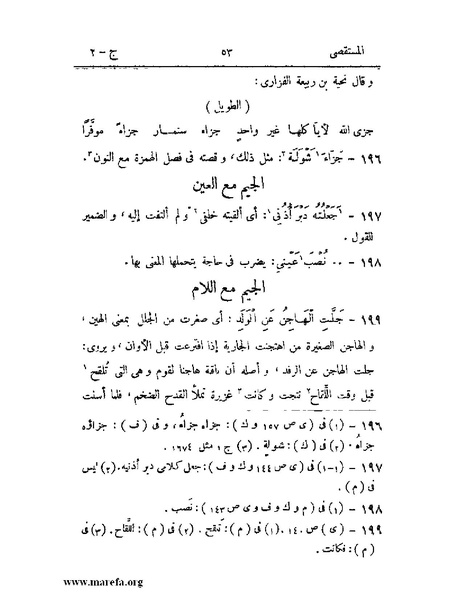 المستقصى ٥٣ ج – ٢
و قال نحبة بن ربيعة الفزارى:
( الطويل )
جزى الله لأيا كلها غير واحد جزاء سنمار جزاء موفّرا
١٩٦ – جَزَاءَ¹ شَوْلَةَ²: مثل ذلك، و قصته فى فصل الهمزة مع النون³.
الجيم مع العين
١٩٧ – ¹جَعَلْتُهُ دَبْرَ أُذُنِي¹: أى ألقيته خلفى² و لم ألتفت إليه، و الضمير
للقول.
١٩٨ – .. نُصْبَ¹ عَيْنِي: يضرب فى حاجة يتحملها المعنى بها.
الجيم مع اللام
١٩٩ – جَلَّتِ الْهَاجِنُ عَنِ الْوَلَدِ: أى صغرت من الجلل بمعنى الهين،
و الهاجن الصغيرة من اهتجنت الجارية إذا افترعت قبل الأوان، و يروى:
جلت الهاجن عن الرفد، و أصله أن ناقة هاجنا لقوم و هى التى تُلقح¹
قبل وقت اللَّقاح² نتجت و كانت³ غزيرة تملأ القدح الضخم، فلما أسنت
١٩٦ – (١) فى (ى ص ١٥٧ و ك): جزاء جزاه، و فى (ف): جزائره
جزاه. (٢) فى (ك): شولة. (٣) ج ١ مثل ١٦٧٤.
١٩٧ – (١-١) فى (ى ص ١٤٤ و ك و ف): جعل كلامى دبر أذنيه. (٢) ليس
فى (م).
١٩٨ – (١) فى (م و ك و ف و ى ص ١٤٣): نَصب.
١٩٩ – (ى) ص ١٤٠. (١) فى (م): تنقح. (٢) فى (م): للَّقاح. (٣) فى
(م): فكانت.
www.marefa.org